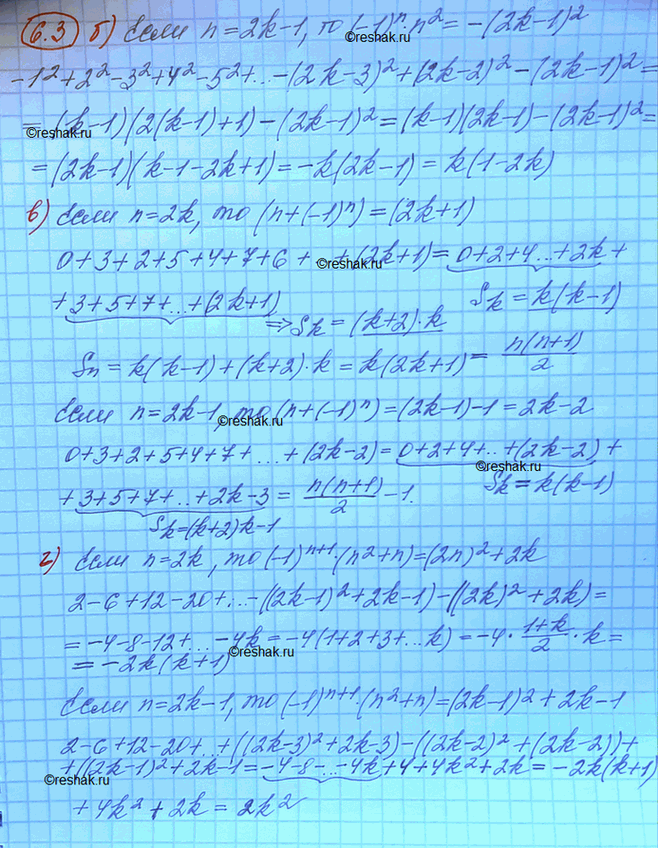 6.3 б) Если n=2k-1, то (-1)ⁿ·n² = -(2k-1)²
©reshak.ru
-1²+2²-3²+4²-5²+...-(2k-3)²+(2k-2)²-(2k-1)²=
=(k-1)(2(k-1)+1)-(2k-1)²=(k-1)(2k-1)-(2k-1)²=
©reshak.ru
=(2k-1)(k-1-2k+1)=-k(2k-1)=k(1-2k)
в) Если n=2k, то (n+(-1)ⁿ)=(2k+1)
0+3+2+5+4+7+6+...+(2k+1)=0+2+4...+2k+
©reshak.ru
+3+5+7+...+(2k+1) Sk=k(k-1)
⇒Sk=(k+2)·k
Sn=k(k-1)+(k+2)·k=k(2k+1)=n(n+1)/2
Если n=2k-1, то (n+(-1)ⁿ)=(2k-1)-1=2k-2
©reshak.ru
0+3+2+5+4+7+...+(2k-2)=0+2+4+...+(2k-2)+
©reshak.ru
+3+5+7+...+2k-3=n(n+1)/2-1. Sk=k(k-1)
Sk=(k+2)k-1
г) Если n=2k, то (-1)ⁿ⁺¹·(n²+n)=(2n)²+2k
2-6+12-20+...-((2k-1)²+2k-1)-((2k)²+2k)=
=-4-8-12+...-4k=-4(1+2+3+...k)=-4·(1+k)/2·k=
=-2k(k+1)
©reshak.ru
Если n=2k-1, то (-1)ⁿ⁺¹·(n²+n)=(2k-1)²+2k-1
2-6+12-20+...+((2k-3)²+2k-3)-((2k-2)²+(2k-2))+
+((2k-1)²+2k-1=-4-8-...-4k+4+4k²+2k=-2k(k+1)
©reshak.ru
+4k²+2k=2k²